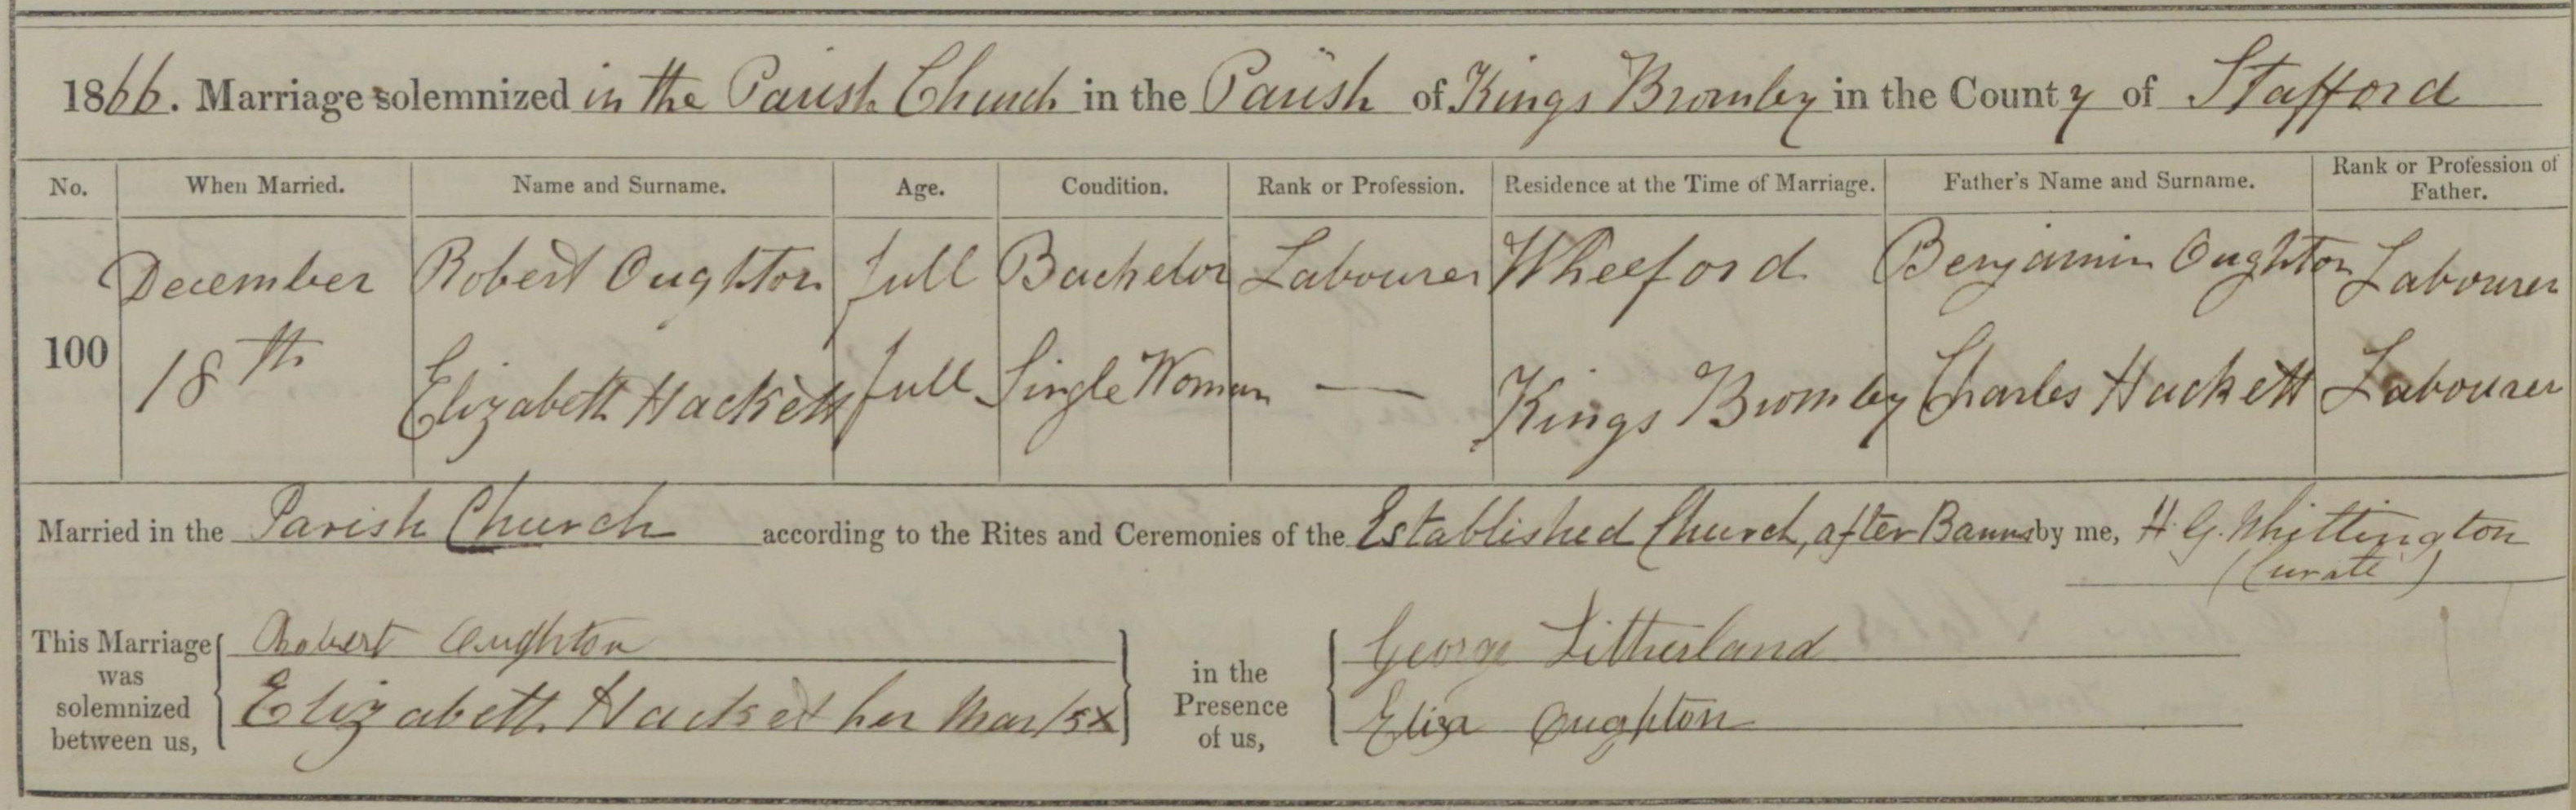 1866. Marriage solemnized in the Parish Church in the Parish of Kings Bromley in the County of Stafford
No. When Married. Name and Surname. Age. Condition. Rank or Profession. Residence at the Time of Marriage. Father's Name and Surname. Rank or Profession of Father.
December Robert Oughton full Bachelor Labourer Wheeford Benjamin Oughton Labourer
100 18th Elizabeth Hackett full Single Woman — Kings Bromley Charles Hackett Labourer
Married in the Parish Church according to the Rites and Ceremonies of the Established Church, after Banns by me, H. G. Whittington
(Curate)
This Marriage was solemnized between us, Robert Oughton
Elizabeth Hacket her Mark x
in the Presence of us, George Litherland
Eliza Oughton